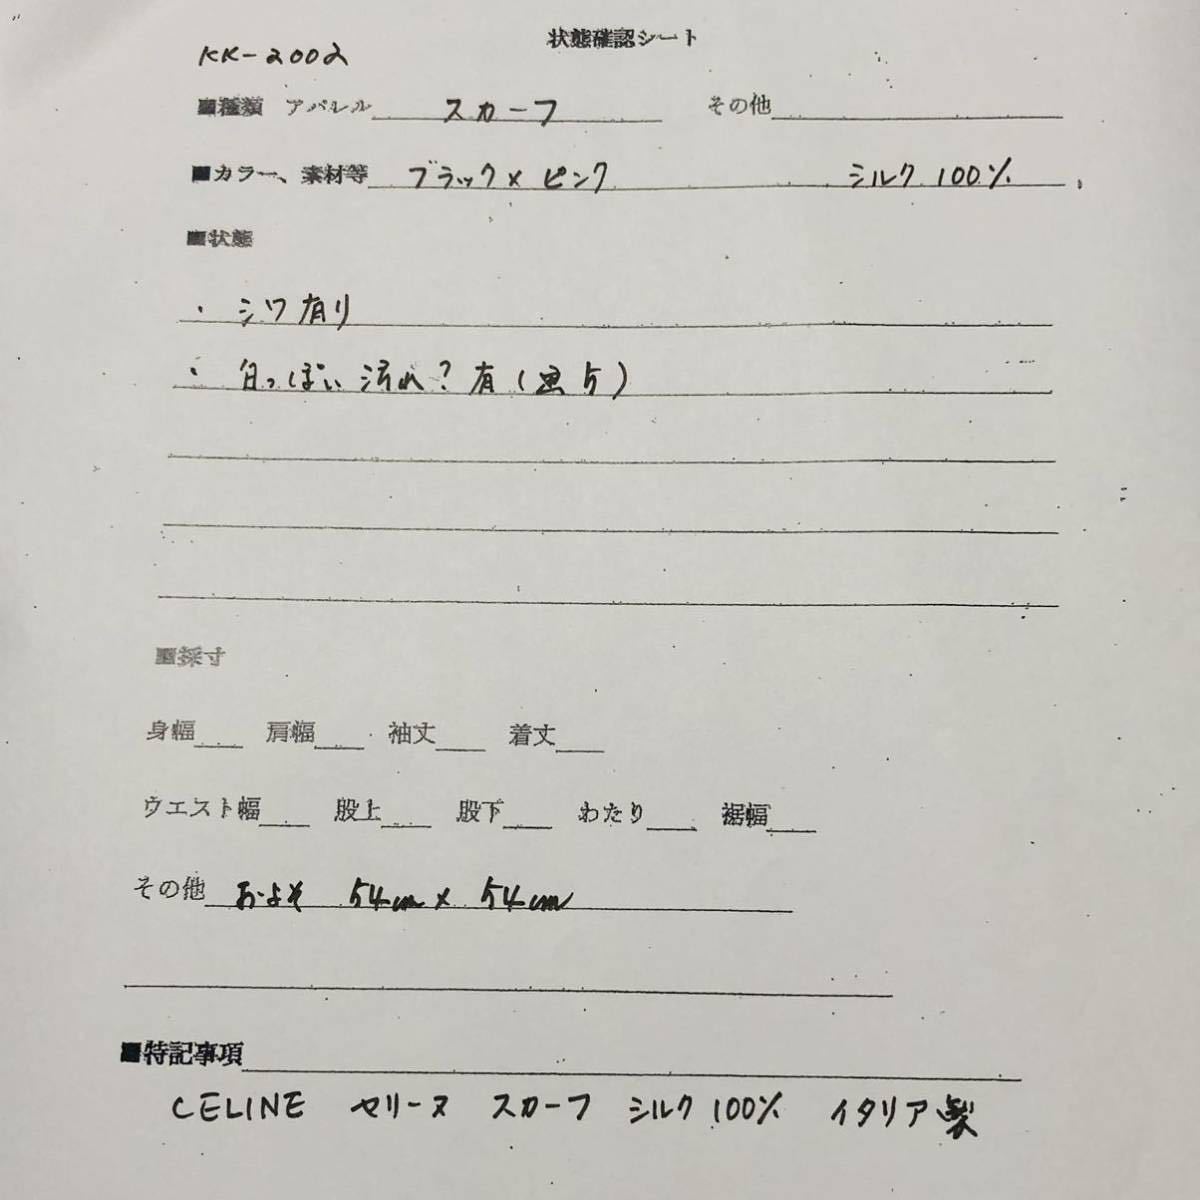 状態確認シート
KK-2002
■種類 アパレル スカーフ その他
■カラー、素材等 ブラック×ピンク シルク100%
■状態
・シワ有り
・白っぽい汚れ?有(画5)
■採寸
身幅 肩幅 袖丈 着丈
ウエスト幅 股上 股下 わたり 裾幅
その他 およそ 54cm×54cm
■特記事項
CELINE セリーヌ スカーフ シルク100% イタリア製